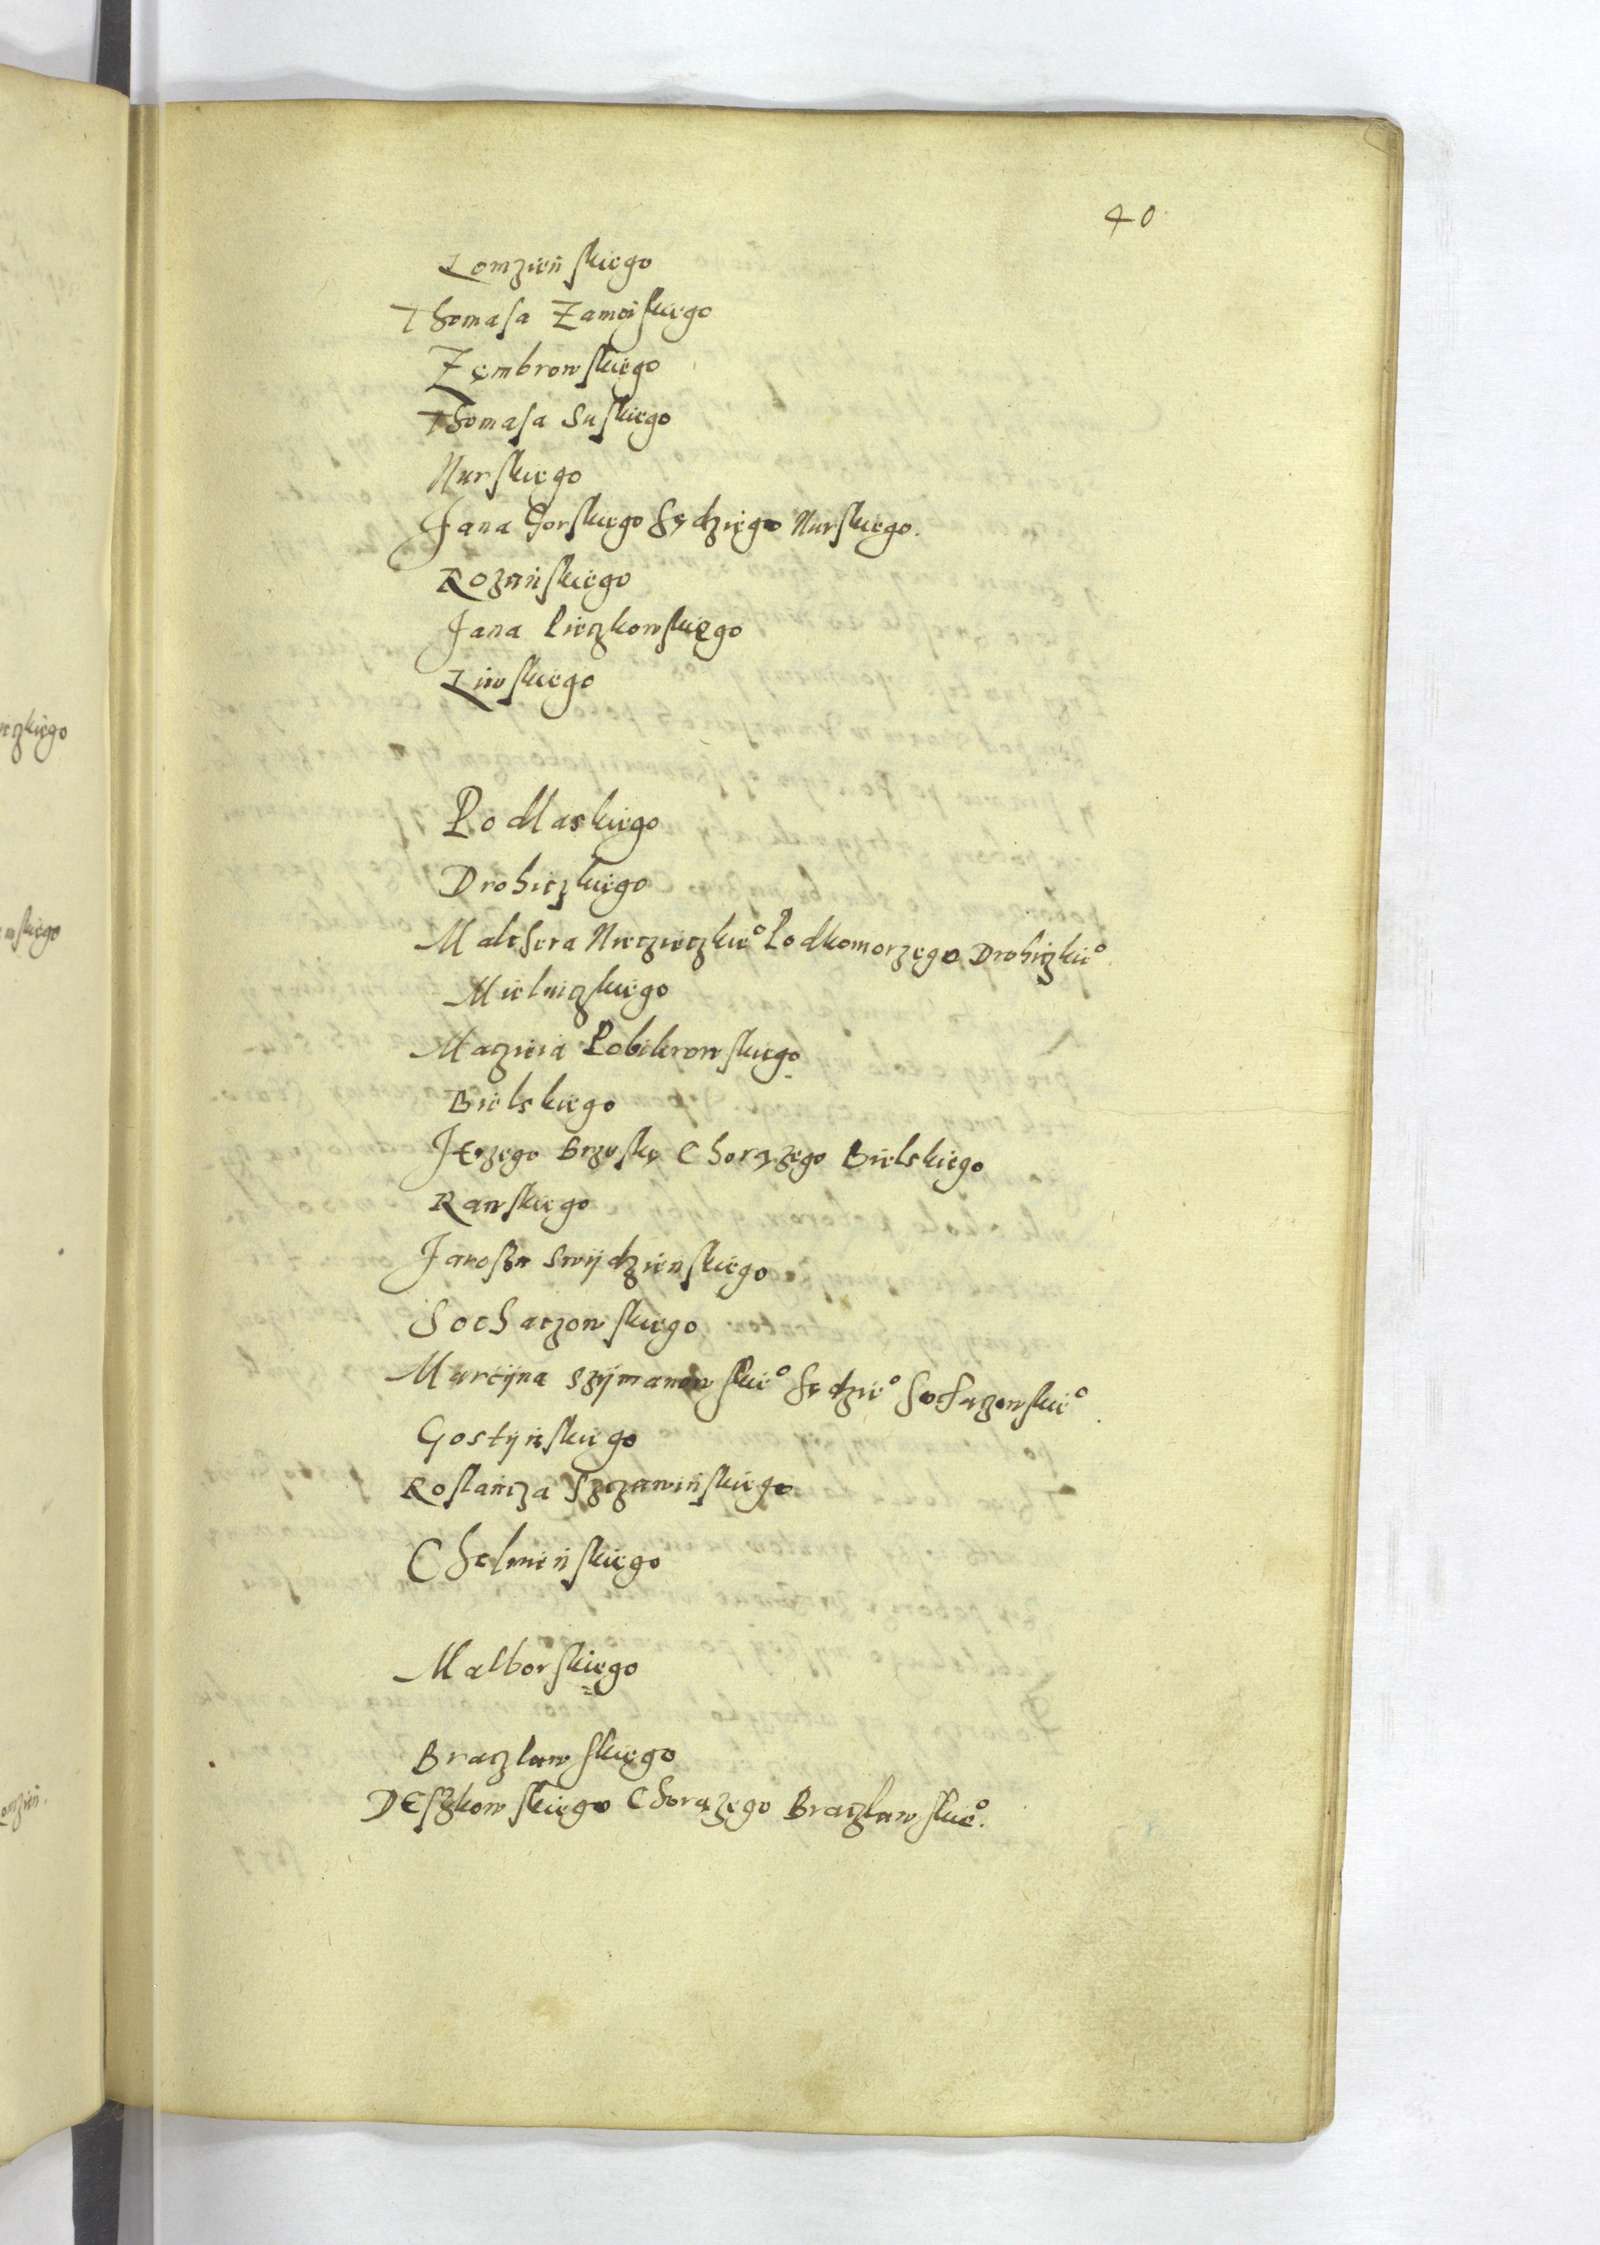 40
Łomzień skiego
Thomasa Zamoiskiego
Zembrowskiego
Thomasa Suskiego
Nurskiego
Jana Gorskiego Sędziego Nurskiego.
Rozańskiego
Jana Liczkowskiego
Liwskiego
Podlaskiego
Drohiczkiego
Malchera Nieczieczkie° Podkomorzego Drohiczkie°
Mielniczkiego
Maczieia Pobikrowskiego
Bielskiego
Jerzego Brzuskę Chorązego Bielskiego
Rawskiego
Jarosza Swijdzienskiego
Sochaczowskiego
Marcijna Szijmanowskie° Sędzie° Sochaczowskie°.
Gostijńskiego
Roslańcza Szczawińskiego
Chelmińskiego
Malborskiego
Braczlawskiego
Deszkowskiego Chorązego Braczlawskie°.